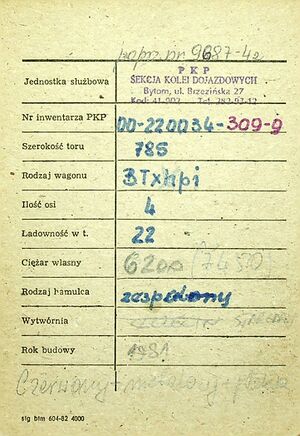 poprz. nr 9687-42
PKP
SEKCJA KOLEI DOJAZDOWYCH
Jednostka służbowa Bytom, ul. Brzezińska 27
Kod: 41-902 Tel. 282-92-12
Nr inwentarza PKP 00-220034-309-9
Szerokość toru 785
Rodzaj wagonu BTxhpi
Ilość osi 4
Ładowność w t. 22
Ciężar własny 6200 (7450)
Rodzaj hamulca zespolony
Wytwórnia
Rok budowy 1981
Czerwony
stg btm 604-82 4000